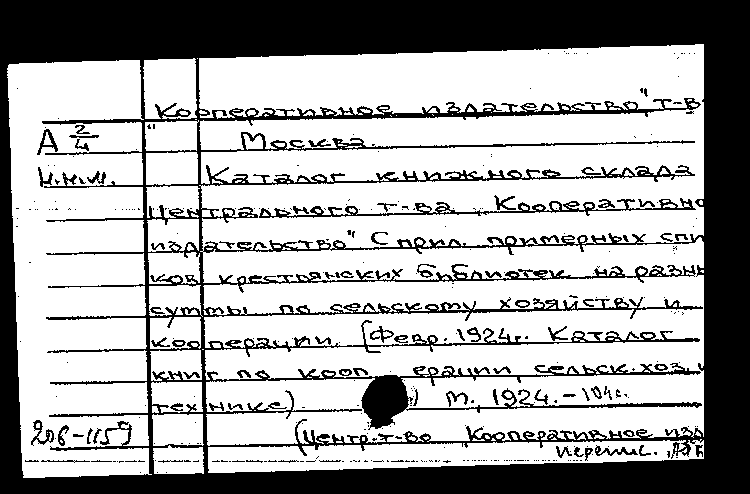 "Кооперативное издательство", т-в
А 2/4 Москва.
И.М.И. Каталог книжного склада
Центрального т-ва „Кооперативно
издательство" С прил. примерных спи
ков крестьянских библиотек на разны
суммы по сельскому хозяйству и
кооперации. [Февр. 1924г. Каталог
книг по кооп ерации, сельск. хоз. и
технике) ) М., 1924. - 104с.
206-1159 (Центр. т-во „Кооперативное изд
перепис.